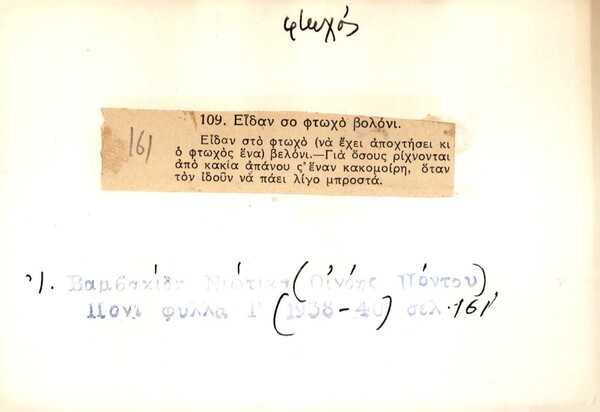 φτωχός
109. Εἶδαν σο φτωχὸ βολόνι.
161
Εἶδαν στὸ φτωχὸ (νὰ ἔχει ἀποχτήσει κι
ὁ φτωχὸς ἕνα) βελόνι.—Γιὰ ὅσους ρίχνονται
ἀπὸ κακία ἀπάνου ς' ἕναν κακομοίρη, ὅταν
τὸν ἰδοῦν νὰ πάει λίγο μπροστά.
Βαμβακίδη Νιώτικα (Οἰνόης Πόντου)
Ποντ φυλλα Γ (1938-40) σελ. 161